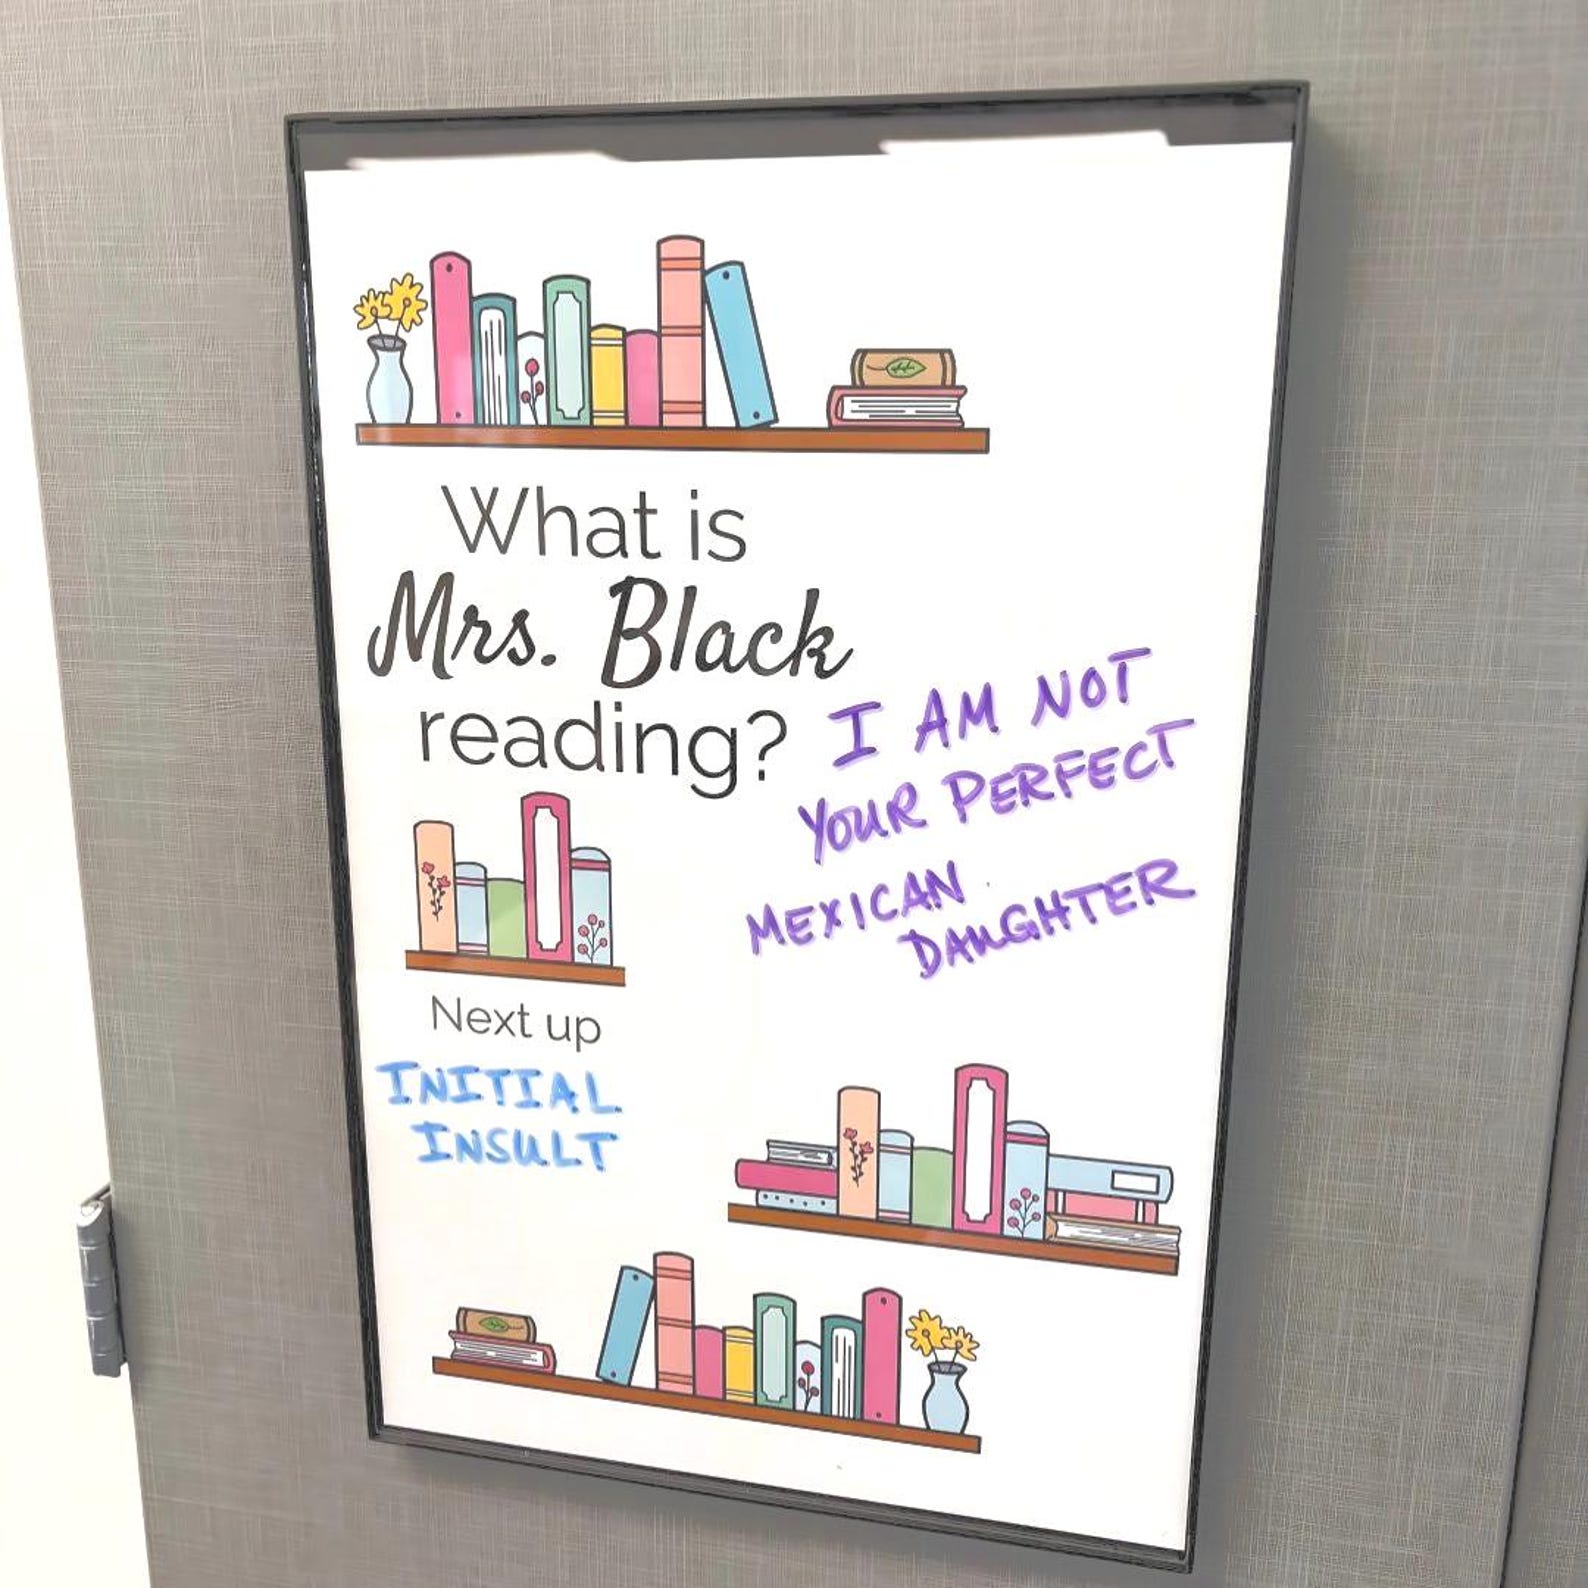 What is
Mrs. Black
reading?
I AM NOT
YOUR PERFECT
MEXICAN
DAUGHTER
Next up
INITIAL
INSULT